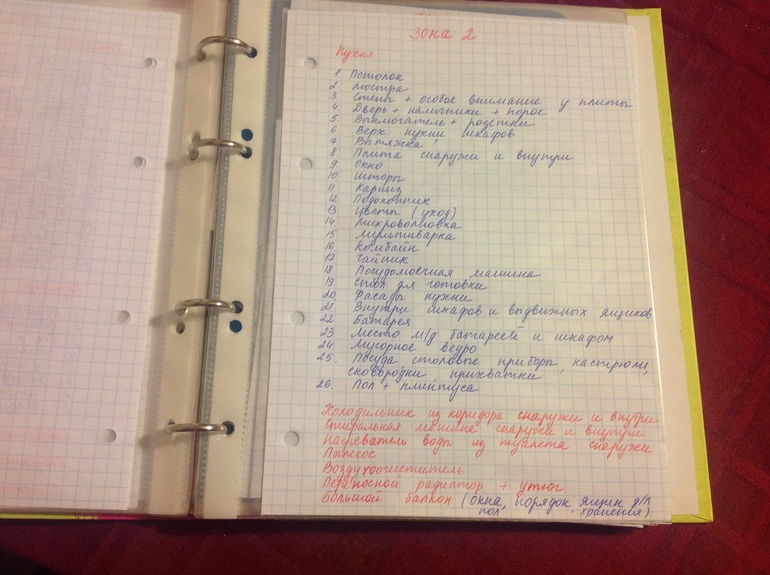 Зона 2
Кухня
1 Потолок
2 Люстра
3 Стены + особое внимание у плиты
4 Дверь + наличники + порог
5 Выключатель + розетки
6 Верх кухни шкафов
7 Вытяжка
8 Плита снаружи и внутри
9 Окно
10 Шторы
11 Карниз
12 Подоконник
13 Цветы (уход)
14 Микроволновка
15 Мультиварка
16 Комбайн
17 Чайник
18 Посудомоечная машина
19 Стол для готовки
20 Фасады кухни
21 Внутри шкафов и выдвижных ящиков
22 Батарея
23 Место м/д батареей и шкафом
24 Мусорное ведро
25. Посуда столовые приборы, кастрюли,
сковородки прихватки
26. Пол + плинтуса
Холодильник из коридора снаружи и внутри
Стиральная машина снаружи и внутри
Нагреватель воды из туалета снаружи
Пылесос
Воздухоочиститель
Переносной радиатор + утюг
Большой балкон (окна, порядок ящик д/л
пол, хранения)